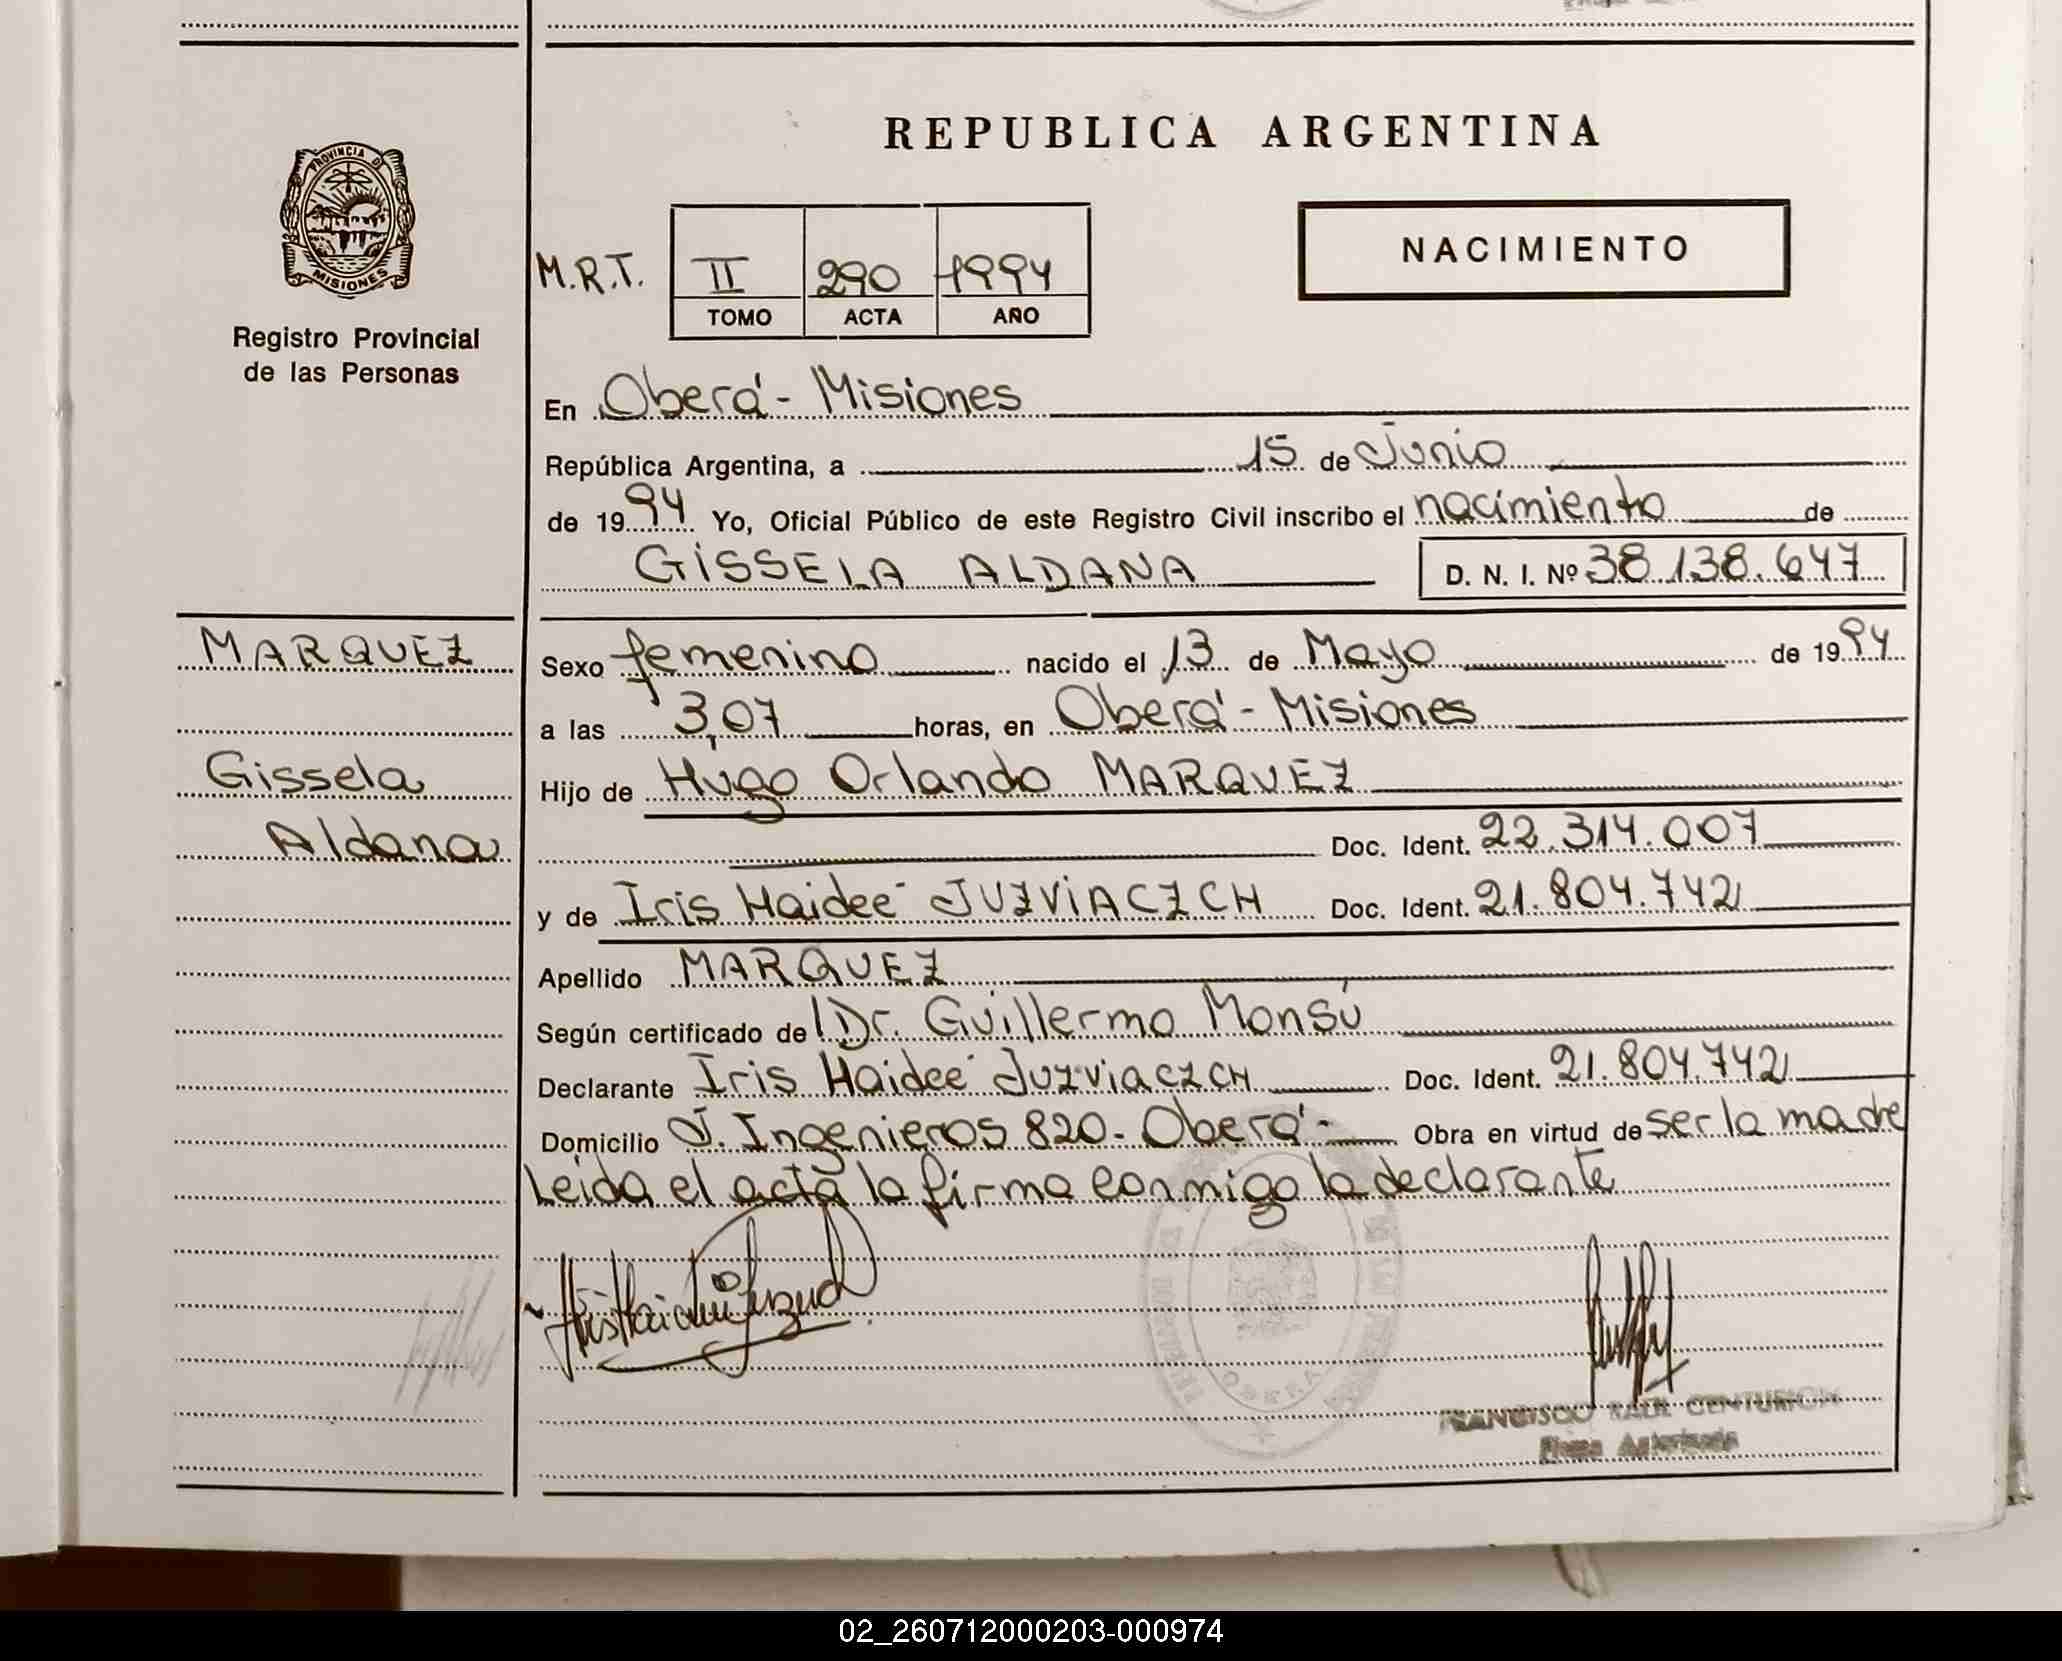 REPUBLICA ARGENTINA
PROVINCIA DE
MISIONES
Registro Provincial
de las Personas
NACIMIENTO
M.R.T. II 290 1994
TOMO ACTA AÑO
En Oberá - Misiones
República Argentina, a 15 de Junio
de 1994 Yo, Oficial Público de este Registro Civil inscribo el nacimiento de
GISSELA ALDANA D. N. I. Nº 38.138.647
MARQUEZ
Gissela
Aldana
Sexo femenino nacido el 13 de Mayo de 1994
a las 3,07 horas, en Oberá - Misiones
Hijo de Hugo Orlando MARQUEZ
Doc. Ident. 22.314.007
y de Iris Haideé JUZVIACZCH Doc. Ident. 21.804.742
Apellido MARQUEZ
Según certificado de Dr. Guillermo Monsú
Declarante Iris Haideé Juzviaczch Doc. Ident. 21.804.742
Domicilio J. Ingenieros 820 - Oberá - Obra en virtud de ser la madre
Leída el acta la firma conmigo la declarante
OBERA
FRANCISCO RAUL CENTURION
Firma Autorizada
02_260712000203-000974